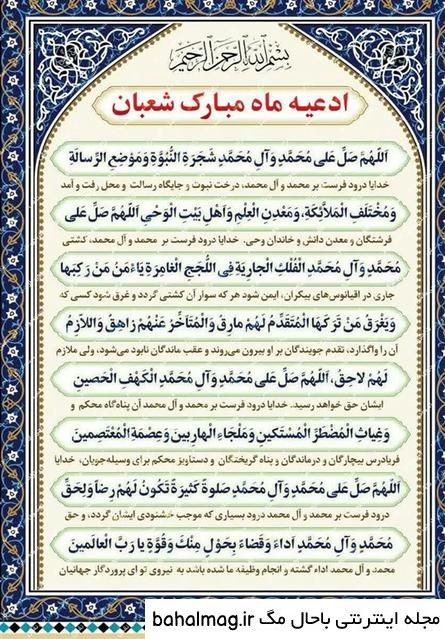 بسم الله الرحمن الرحیم
ادعیه ماه مبارک شعبان
اَللّهُمَّ صَلِّ عَلی مُحَمَّدٍ وَآلِ مُحَمَّدٍ شَجَرَةِ النُّبُوَّةِ وَمَوْضِعِ الرِّسالَةِ
خدایا درود فرست بر محمد و آل محمد، درخت نبوت و جایگاه رسالت و محل رفت و آمد
وَمُخْتَلَفِ الْمَلآئِكَةِ، وَمَعْدِنِ الْعِلْمِ وَاَهْلِ بَیْتِ الْوَحْیِ اَللّهُمَّ صَلِّ عَلی
فرشتگان و معدن دانش و خاندان وحی. خدایا درود فرست بر محمد و آل محمد، کشتی
مُحَمَّدٍ وَآلِ مُحَمَّدٍ الْفُلْكِ الْجارِیَةِ فِی اللُّجَجِ الْغامِرَةِ یَاْمَنُ مَنْ رَكِبَها
جاری در اقیانوس‌های بیکران، ایمن شود هر که سوار آن کشتی گردد و غرق شود کسی که
وَیَغْرَقُ مَنْ تَرَكَهَا الْمُتَقَدِّمُ لَهُمْ مارِقٌ وَالْمُتَاَخِّرُ عَنْهُمْ زاهِقٌ وَاللاّزِمُ
آن را واگذارد، تقدم جویندگان بر او بیرون می‌روند و عقب ماندگان نابود می‌شود، ولی ملازم
لَهُمْ لاحِقٌ، اَللّهُمَّ صَلِّ عَلی مُحَمَّدٍ وَآلِ مُحَمَّدٍ الْكَهْفِ الْحَصینِ
ایشان حق خواهد رسید. خدایا درود فرست بر محمد و آل محمد آن پناه‌گاه محکم و
وَغِیاثِ الْمُضْطَرِّ الْمُسْتَكینِ وَمَلْجَاءِ الْهارِبینَ وَعِصْمَةِ الْمُعْتَصِمینَ
فریادرس بیچارگان و درماندگان و پناه گریختگان و دستاویز محکم برای وسیله‌جویان، خدایا
اَللّهُمَّ صَلِّ عَلی مُحَمَّدٍ وَآلِ مُحَمَّدٍ صَلوةً كَثیرَةً تَكُونُ لَهُمْ رِضاً وَلِحَقِّ
درود فرست بر محمد و آل محمد درود بسیاری که موجب خشنودی ایشان گردد، و حق
مُحَمَّدٍ وَآلِ مُحَمَّدٍ اَداءً وَقَضاءً بِحَوْلٍ مِنْكَ وَقُوَّةٍ یا رَبَّ الْعالَمینَ
محمد و آل محمد اداء گشته و انجام وظیفه ما شده باشد به نیروی تو ای پروردگار جهانیان
مجله اینترنتی باحال مگ bahalmag.ir